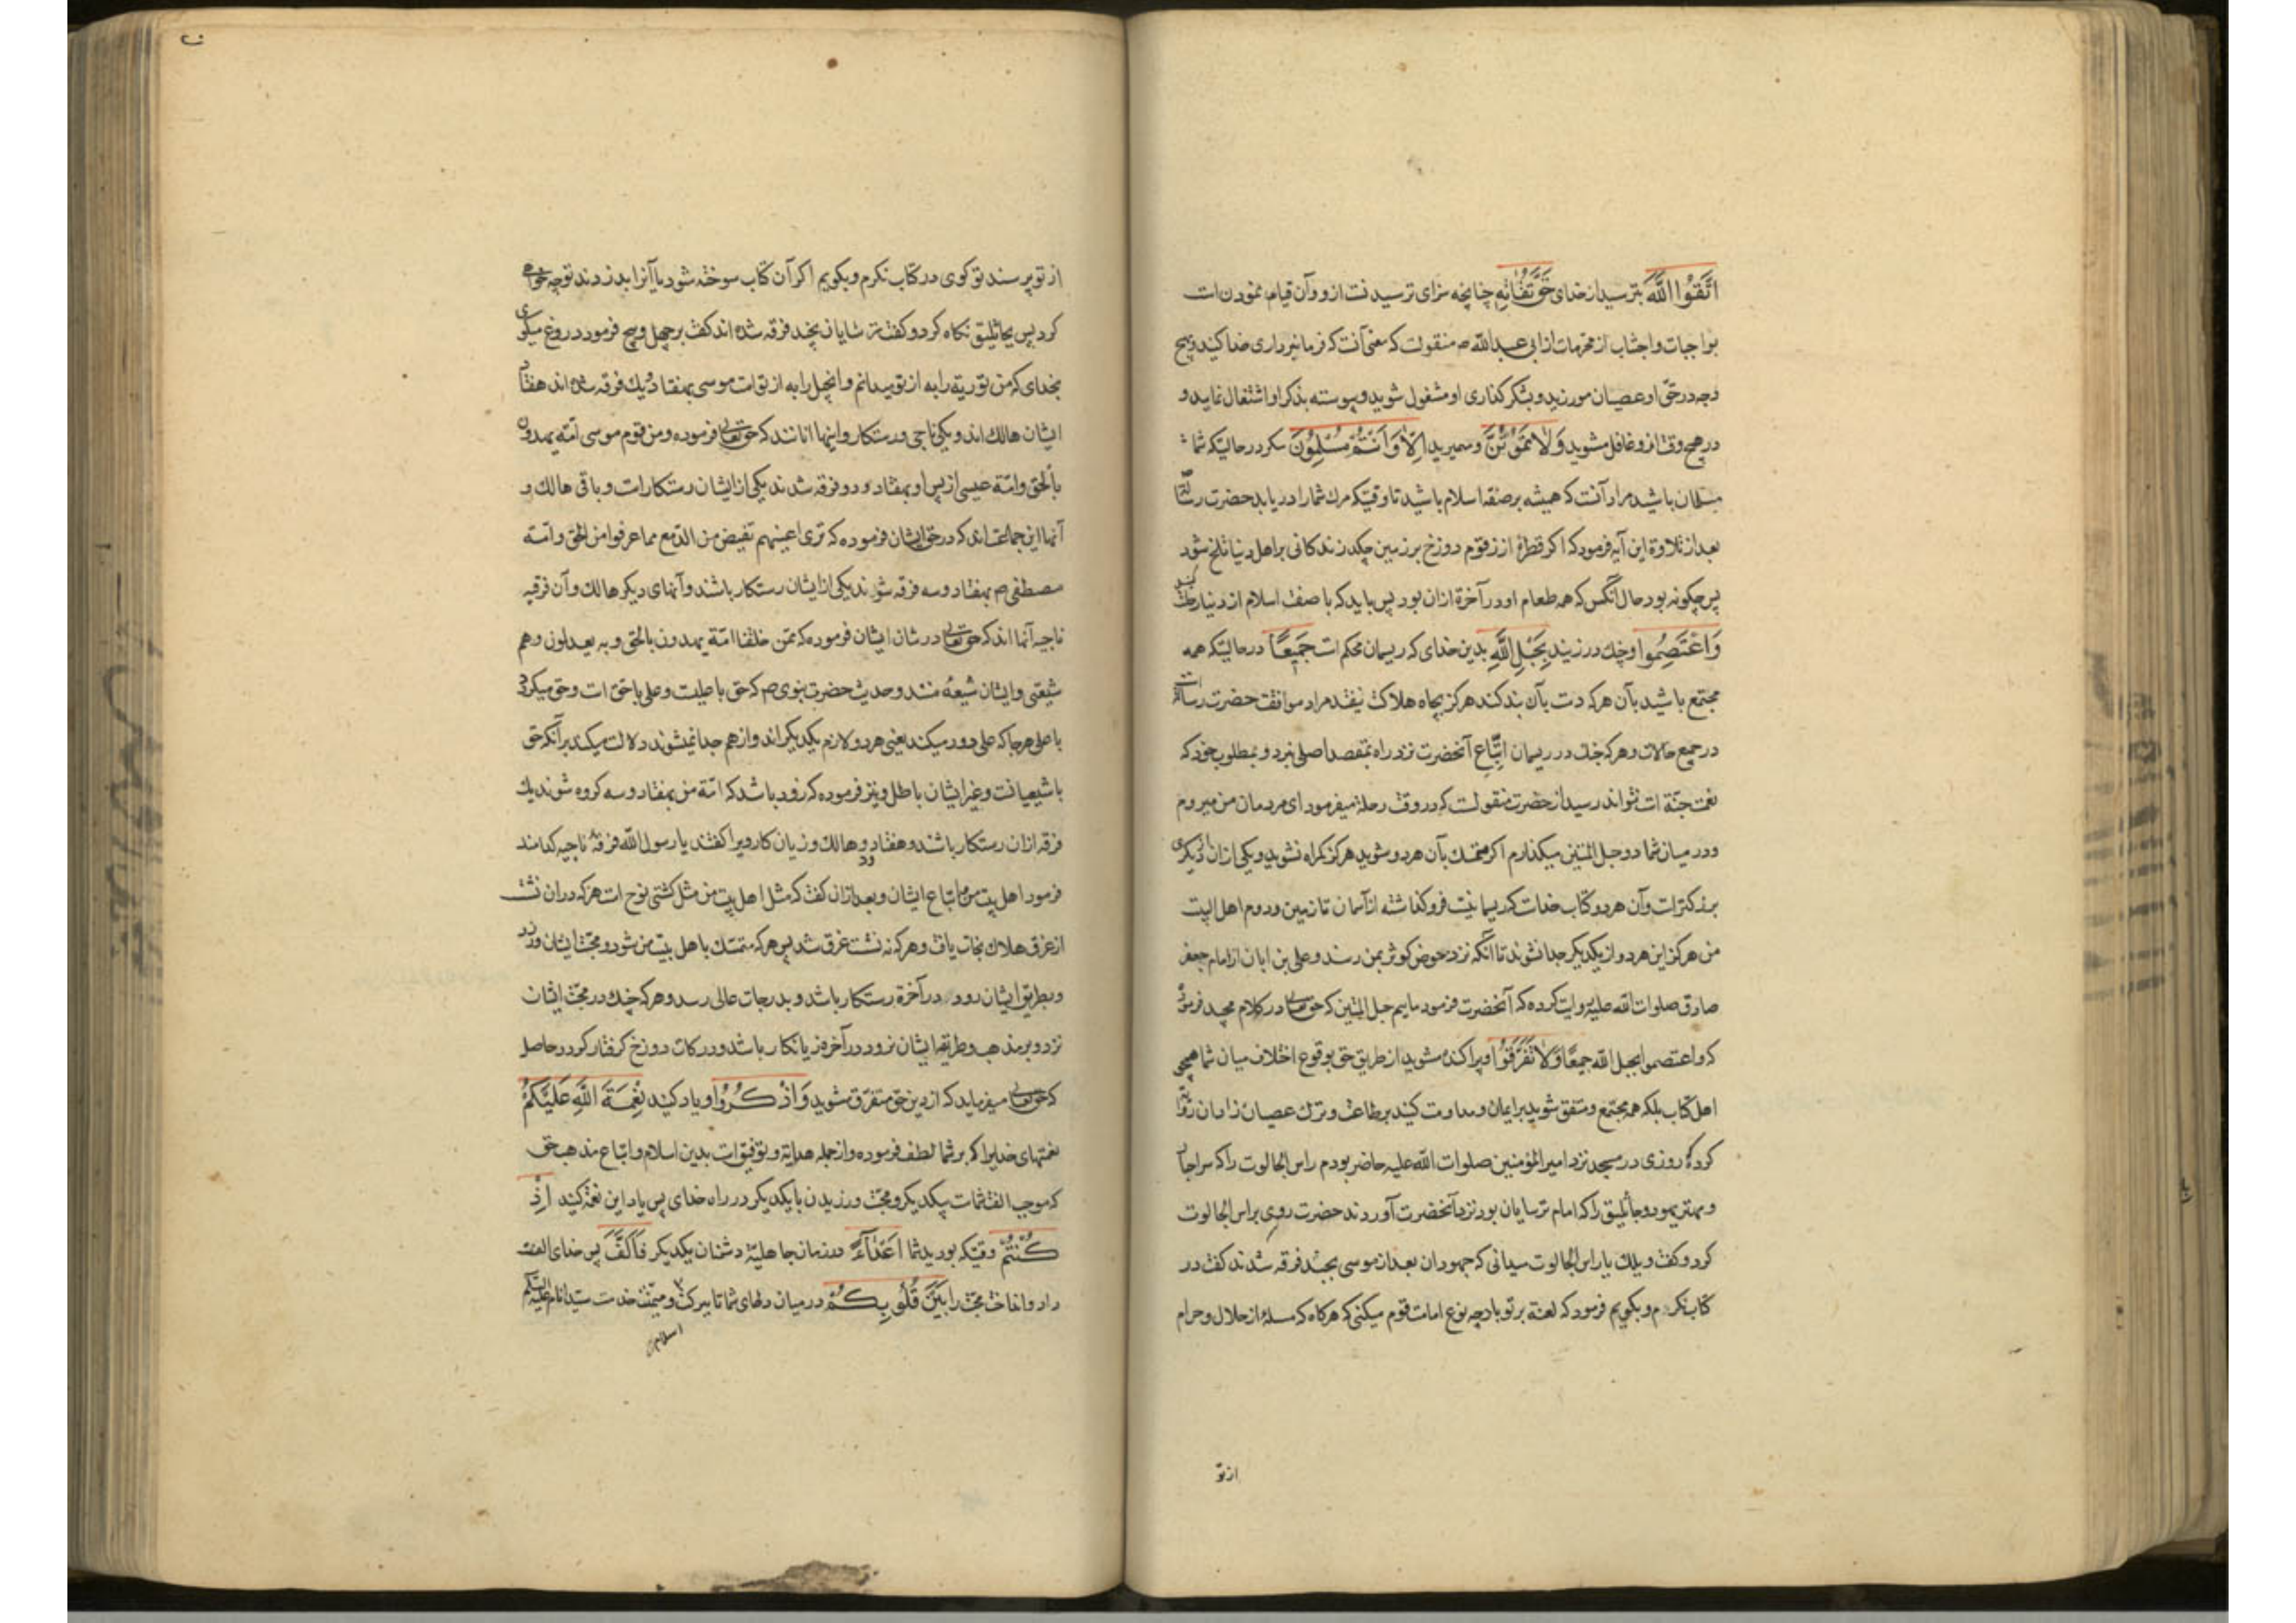 اتَّقُوا اللَّهَ بترسید از خدای حَقَّ تُقَاتِهِ چنانچه سزای ترسیدنست ازو و آن قیام نمودن است
بواجبات و اجتناب از محرمات از ابی عبدالله ص منقولست که معنی آنست که فرمانبرداری خدا کنید و بهیچ
وجه در حق او عصیان مورزید و بشکر گذاری او مشغول شوید و پیوسته بذکر او اشتغال نمایید و
در هیچ وقت ازو غافل مشوید وَلَا تَمُوتُنَّ و ممیرید اِلَّا وَاَنْتُمْ مُسْلِمُونَ مکر در حالتیکه شما
مسلمان باشید مراد آنست که همیشه بر صفة اسلام باشید تا وقتیکه مرك شما را دریابد حضرت رسالت
بعد از تلاوة این آیه فرمود که اکر قطرهٔ از زقوم دوزخ بر زمین چکد زندکانی بر اهل دنیا تلخ شود
پس چکونه بود حال آنکس که همه طعام او در آخرة ازان بود پس باید که با صفت اسلام از دنیا رحلت کنید
وَاعْتَصِمُوا و چنك در زنید بِحَبْلِ اللَّهِ بدین خدای که ریسمان محکم است جَمِيعًا درحالتیکه همه
مجتمع باشید بآن هرکه دست بآن بند کند هرکز بچاه هلاکت نیفتد مراد موافقت حضرت رسالت است
در جمیع حالات و هرکه چنك در ریسمان اتّباع آنحضرت نزد راه بمقصد اصلی نبرد و بمطلوب خود که
نعمت جنّة است نتواند رسید از حضرت منقولست که در وقت رحلة میفرمود ای مردمان من میروم
و در میان شما دو حبل المتین میکذارم اکر متمسك بآن هر دو شوید هرکز کمراه نشوید و یکی ازان از دیکری
بزرکتر است و آن هر دو کتاب خداست که ریسمانیست فروکذاشته از آسمان تا زمین و دوم اهل البیت
من هرکز این هر دو از یکدیکر جدا نشوند تا آنکه نزد حوض کوثر بمن رسند و علی بن ابان از امام جعفر
صادق صلوات الله علیه روایت کرده که آنحضرت فرمود ماییم حبل المتین که حق تعالی در کلام مجید فرموده
که واعتصموا بحبل الله جمیعًا وَلَا تَفَرَّقُوا و پراکنده مشوید از طریق حق بوقوع اختلاف میان شما همچو
اهل کتاب بلکه همه مجتمع و متفق شوید بر ایمان و مداومت کنید بر طاعت و ترك عصیان زادان روایة
کرده که روزی در مسجد نزد امیر المؤمنین صلوات الله علیه حاضر بودم راس الجالوت را که
و مهتر یهود و جاثلیق را که امام ترسایان بود نزد آنحضرت آوردند حضرت روی براس الجالوت
کرد و کفت ویلك یا راس الجالوت میدانی که جهودان بعد از موسی بچند فرقه شدند کفت در
کتاب نکرم و بکویم فرمود که لعنة بر تو باد چه نوع امامت قوم میکنی که هرکاه که مسلهٔ از حلال و حرام
از تو
از تو پرسند تو کوی در کتاب نکرم و بکویم اکر آن کتاب سوخته شود یا آنرا بدزدند تو چه خواهی
کرد پس بجاثلیق نکاه کرد و کفت ترسایان بچند فرقه شده اند کفت بر چهل و پنج فرمود دروغ میکوی
بخدای که من توریة را به از تو میدانم و انجیل را به از تو امت موسی بهفتاد و یك فرقه شده اند هفتاد
ایشان هالك اند و یکی ناجی و رستکار و اینها انانند که حق تعالی فرموده ومن قوم موسی امّة یهدون
بالحق و امّة عیسی از پس او بهفتاد و دو فرقه شدند یکی از ایشان رستکار است و باقی هالك و
آنها این جماعت اند که در حق ایشان فرموده که تری اعینهم تفیض من الدّمع مما عرفوا من الحق و امّة
مصطفی ص بهفتاد و سه فرقه شوند یکی از ایشان رستکار باشند و آنهای دیکر هالك و آن فرقهٔ
ناجیه آنها اند که حق تعالی در شان ایشان فرموده که ممّن خلقنا امّة یهدون بالحق و به یعدلون و هم
شیعتی و ایشان شیعهٔ منند و حدیث حضرت نبوی ص که حق با علیست و علی با حق است و حق میکردد
با علی هرجا که علی دور میکند یعنی هر دو لازم یکدیکر اند و از هم جدا نمیشوند دلالت میکند بر آنکه حق
با شیعیانست و غیر ایشان باطل و نیز فرموده که زود باشد که امّة من بهفتاد و سه کروه شوند یك
فرقه ازان رستکار باشند و هفتاد و دو هالك و زیان کار ویرا کفتند یا رسول الله فرقهٔ ناجیه کدامند
فرمود اهل بیت من و اتباع ایشان و بعد ازان کفت که مثل اهل بیت من مثل کشتی نوح است هرکه دران نشست
از غرق هلاك نجات یافت و هرکه نه نشست غرق شد پس هرکه متمسّك با هل بیت من شود و محبّت ایشان ورزد
و بطریق ایشان رود در آخرة رستکار باشد و بدرجات عالی رسد و هرکه چنك در محبّت ایشان
نزد و بر مذهب و طریقهٔ ایشان نرود در آخرة زیانکار باشد و در درکات دوزخ کرفتار کردد حاصل
که حق تعالی میفرماید که از دین حق متفرّق مشوید وَاذْكُرُوا و یاد کنید نِعْمَةَ اللَّهِ عَلَيْكُمْ
نعمتهای خدایرا که بر شما لطف فرموده و از جمله هدایة و توفیق است بدین اسلام و اتباع مذهب حق
که موجب الفت شماست بیکدیکر و محبّت ورزیدن با یکدیکر در راه خدای پس یاد این نعمة کنید اِذْ
كُنْتُمْ وقتیکه بودید شما اَعْدَآءً در زمان جاهلیّة دشمنان یکدیکر فَاَلَّفَ پس خدای الفت
داد و انداخت محبّت را بَيْنَ قُلُوبِكُمْ در میان دلهای شما تا ببرکت و میمنت خدمت سیّد انام علیه السّلام
اسلام